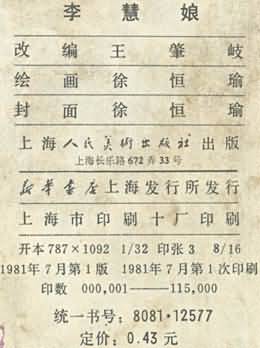 李慧娘
改编 王肇岐
绘画 徐恒瑜
封面 徐恒瑜
上海人民美術出版社出版
上海长乐路672弄33号
新华书店上海发行所发行
上海市印刷十厂印刷
开本787×1092 1/32 印张3 8/16
1981年7月第1版 1981年7月第1次印刷
印数 000,001——115,000
统一书号：8081·12577
定价：0.43元